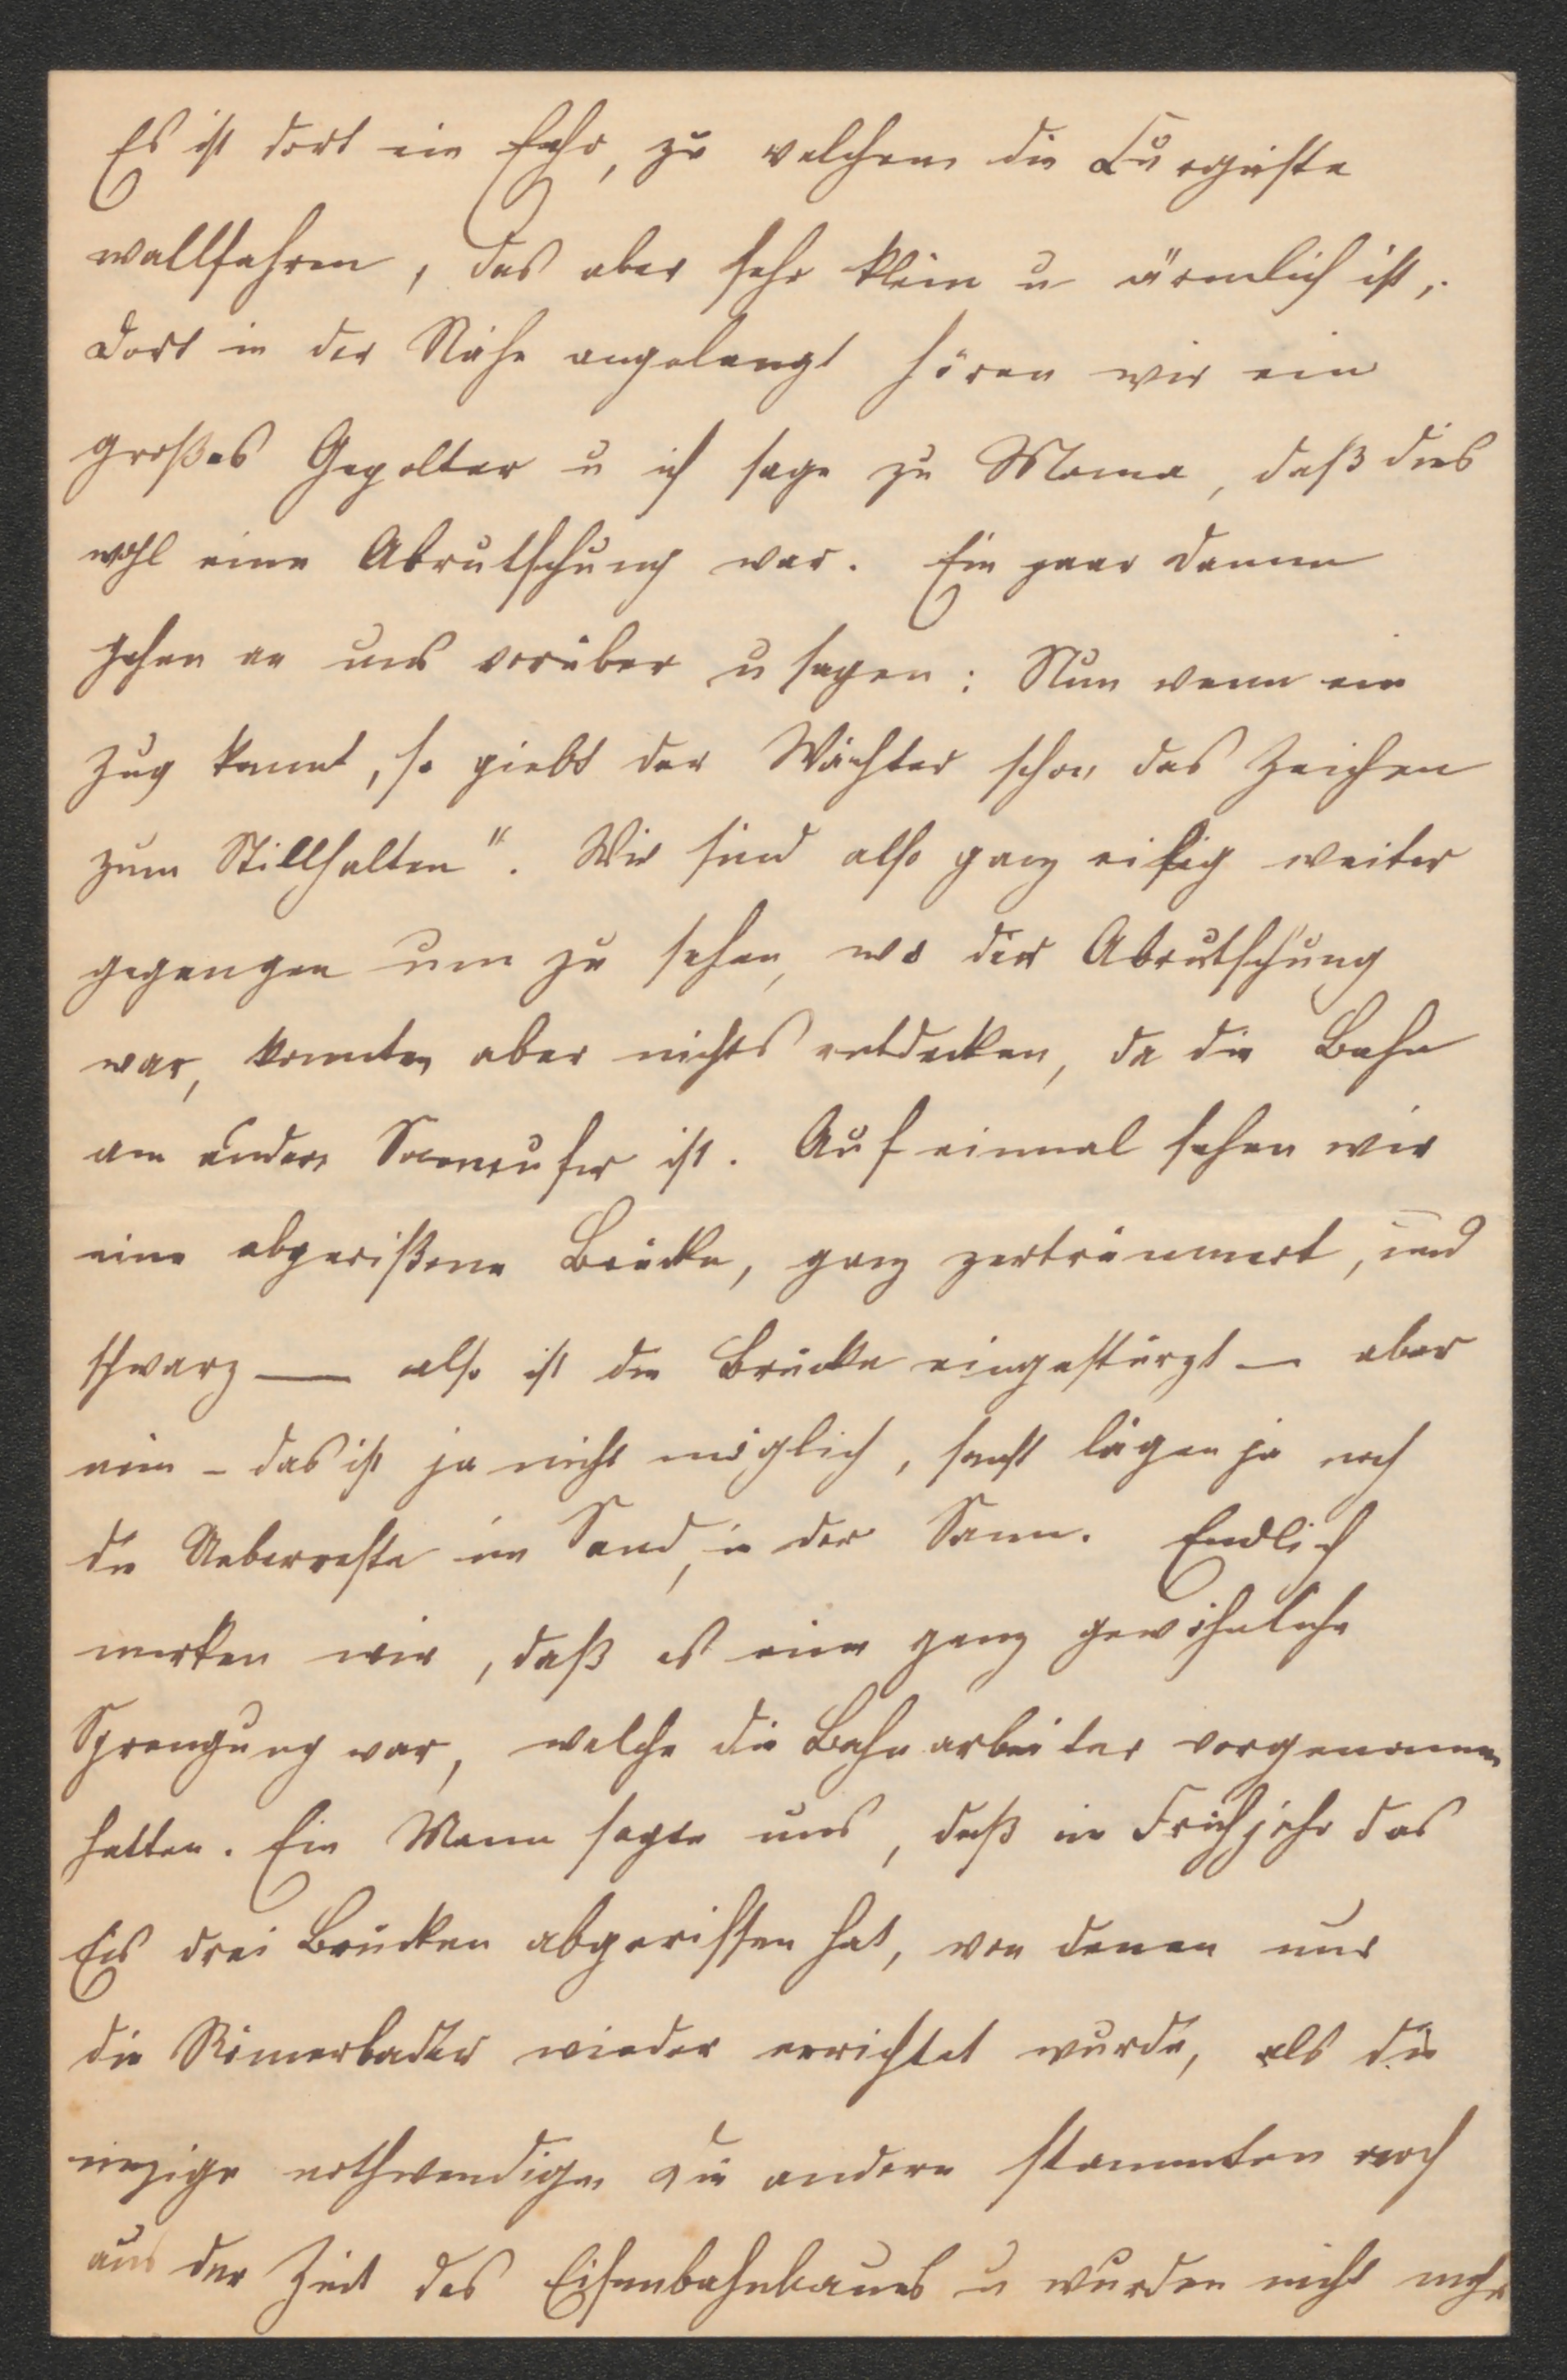 Es ist dort ein Echo, zu welchem die Curgäste
wallfahren, das aber sehr klein u ärmlich ist,.
Dort in der Nähe angelangt hören wir ein
großes Gepolter u ich sage zu Mama, daß dies
wohl eine Abrutschung war. Ein paar Damen
gehen an uns vorüber u sagen: Nun wenn ein
Zug kommt, so giebt der Wächter schon das Zeichen
zum Stillhalten". Wir sind also ganz eifrig weiter
gegangen um zu sehen, wo die Abrutschung
war, konnten aber nichts entdecken, da die Bahn
am andern Sannufer ist. Auf einmal sehen wir
eine abgerißene Brücke, ganz zertrümmert, und
schwarz — also ist die Brücke eingestürzt — aber
nein – das ist ja nicht möglich, sonst lägen ja noch
die Ueberreste im Sand, in der Sann. Endlich
merken wir, daß es eine ganz gewöhnliche
Sprengung war, welche die Bahnarbeiter vorgenommen
hatten. Ein Mann sagte uns, daß im Frühjahr das
Eis drei Brücken abgerissen hat, von denen nur
die Römerbader wieder errichtet wurde, als die
einzige nothwendige, die andern stammten noch
aus der Zeit des Eisenbahnbaues u wurden nicht mehr